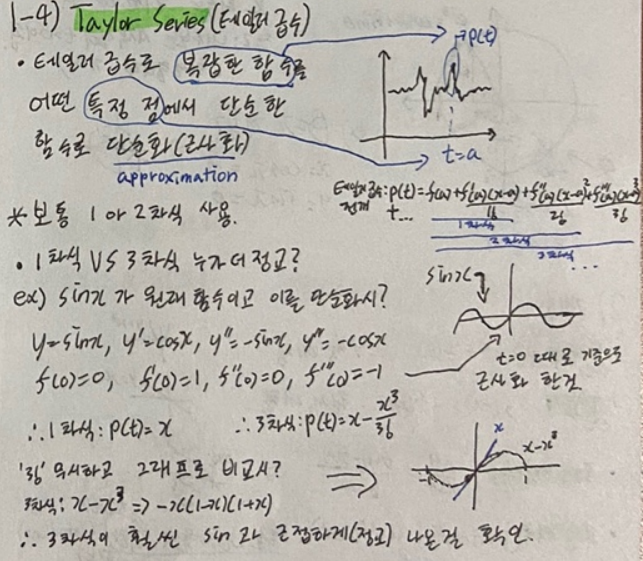 1-4) Taylor Series (테일러 급수)
• 테일러 급수로 복잡한 함수를
어떤 특정 점에서 단순한
함수로 단순화(근사화)
approximation
p(t)
t=a
테일러급수: p(t) = f(a) + f'(a)(x-a)/1! + f''(a)(x-a)²/2! + f'''(a)(x-a)³/3!
전개 +...
1차식
2차식
3차식
...
* 보통 1 or 2차식 사용.
• 1차식 VS 3차식 누가 더 정교?
ex) sinx가 원래 함수이고 이를 단순화시?
sinx
y=sinx, y'=cosx, y''=-sinx, y'''=-cosx
f(0)=0, f'(0)=1, f''(0)=0, f'''(0)=-1
t=0 때로 기준으로
근사화 한것
∴ 1차식: p(t)=x ∴ 3차식: p(t)=x-x³/3!
'3!' 무시하고 그래프로 비교시?
x
x-x³
3차식: x-x³ => -x(1-x)(1+x)
∴ 3차식이 훨씬 sin과 근접하게(정교) 나온걸 확인.